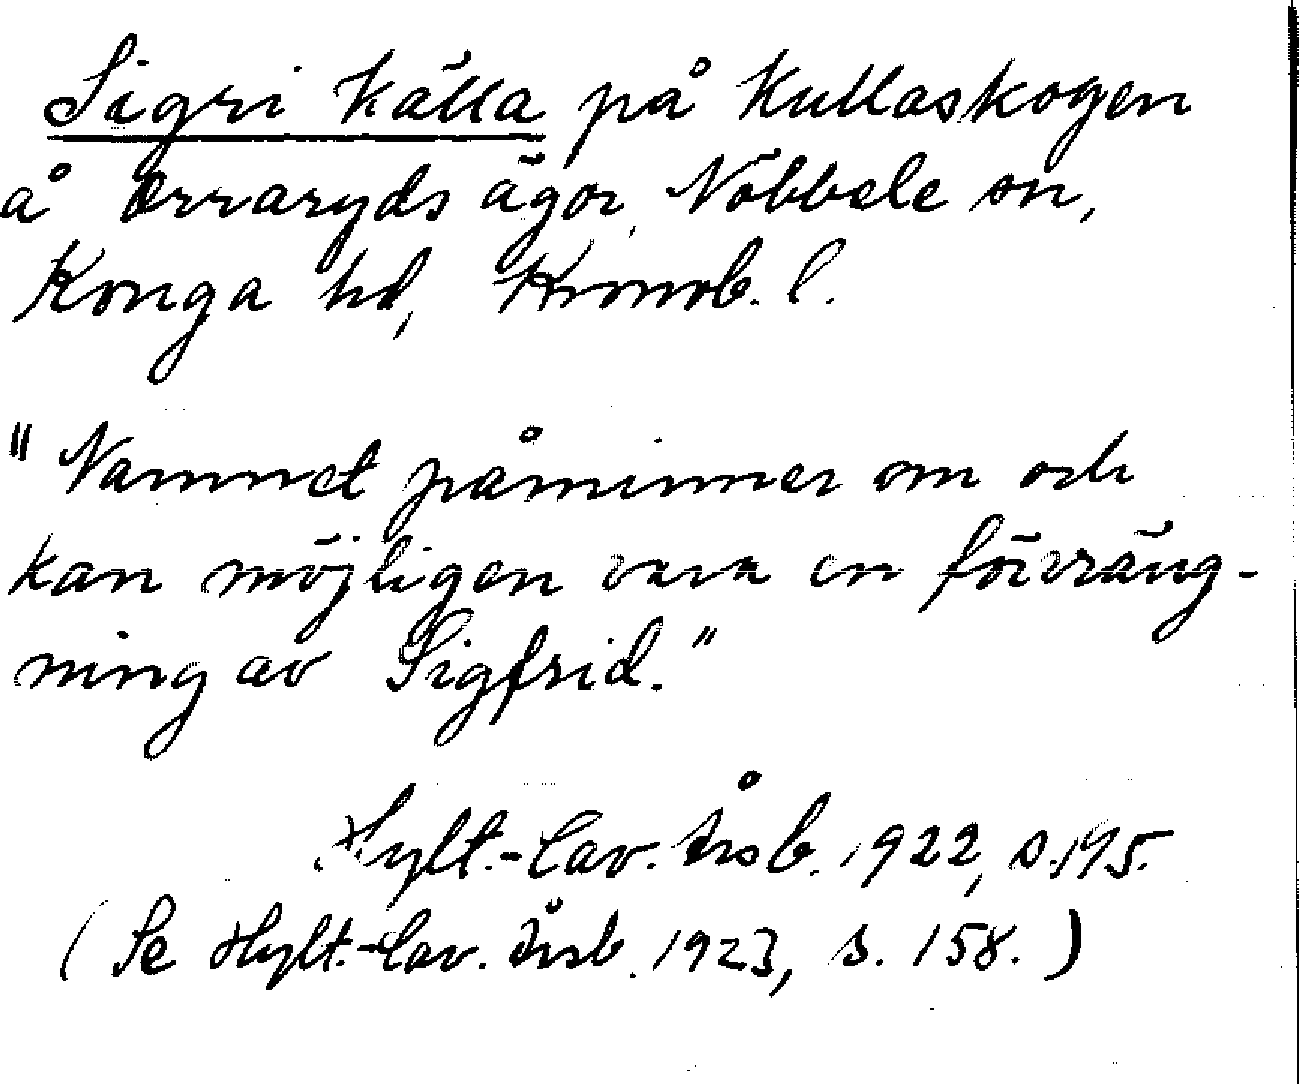 Sigri källa på Kullaskogen
å Orraryds ägor, Nöbbele sn,
Konga hd, Kronob. l.
"Namnet påminner om och
kan möjligen vara en förvräng-
ning av Sigfrid."
Hylt.-Cav. Årsb. 1922, s.195.
(Se Hylt.-Cav. Årsb. 1923, s. 158.)